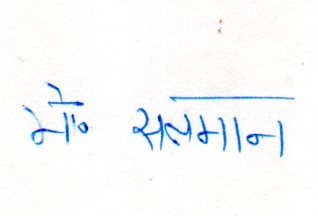 मो० सलमान